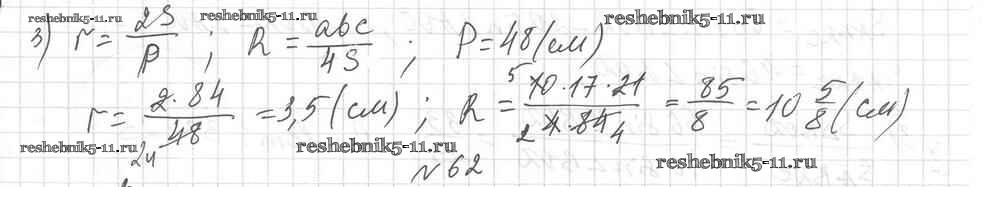 reshebnik5-11.ru reshebnik5-11.ru reshebnik5-11.ru
3) r = 2S/P ; R = abc/4S ; P = 48 (см)
r = 2·84/48 = 3,5 (см) ; R = 10·17·21/4·84 = 85/8 = 10 5/8 (см)
24 5 2 4
reshebnik5-11.ru reshebnik5-11.ru reshebnik5-11.ru
№ 62